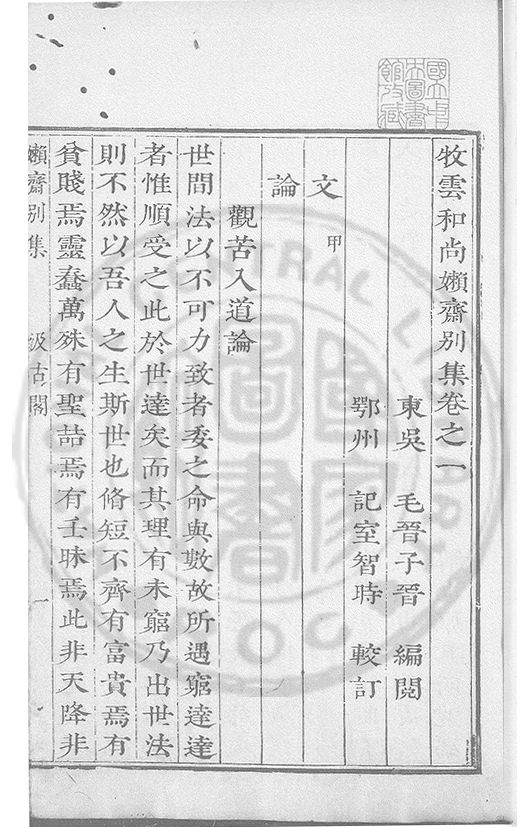 牧雲和尚嬾齋別集卷之一
東吳 毛晉子晉 編閱
鄂州 記室智時 較訂
文 甲
論
觀苦入道論
世間法以不可力致者委之命與數故所遇窮達達
者惟順受之此於世達矣而其理有未窮乃出世法
則不然以吾人之生斯世也脩短不齊有富貴焉有
貧賤焉靈蠢萬殊有聖喆焉有壬昧焉此非天降非
嬾齋別集 汲古閣 一
國立中央圖書館收藏